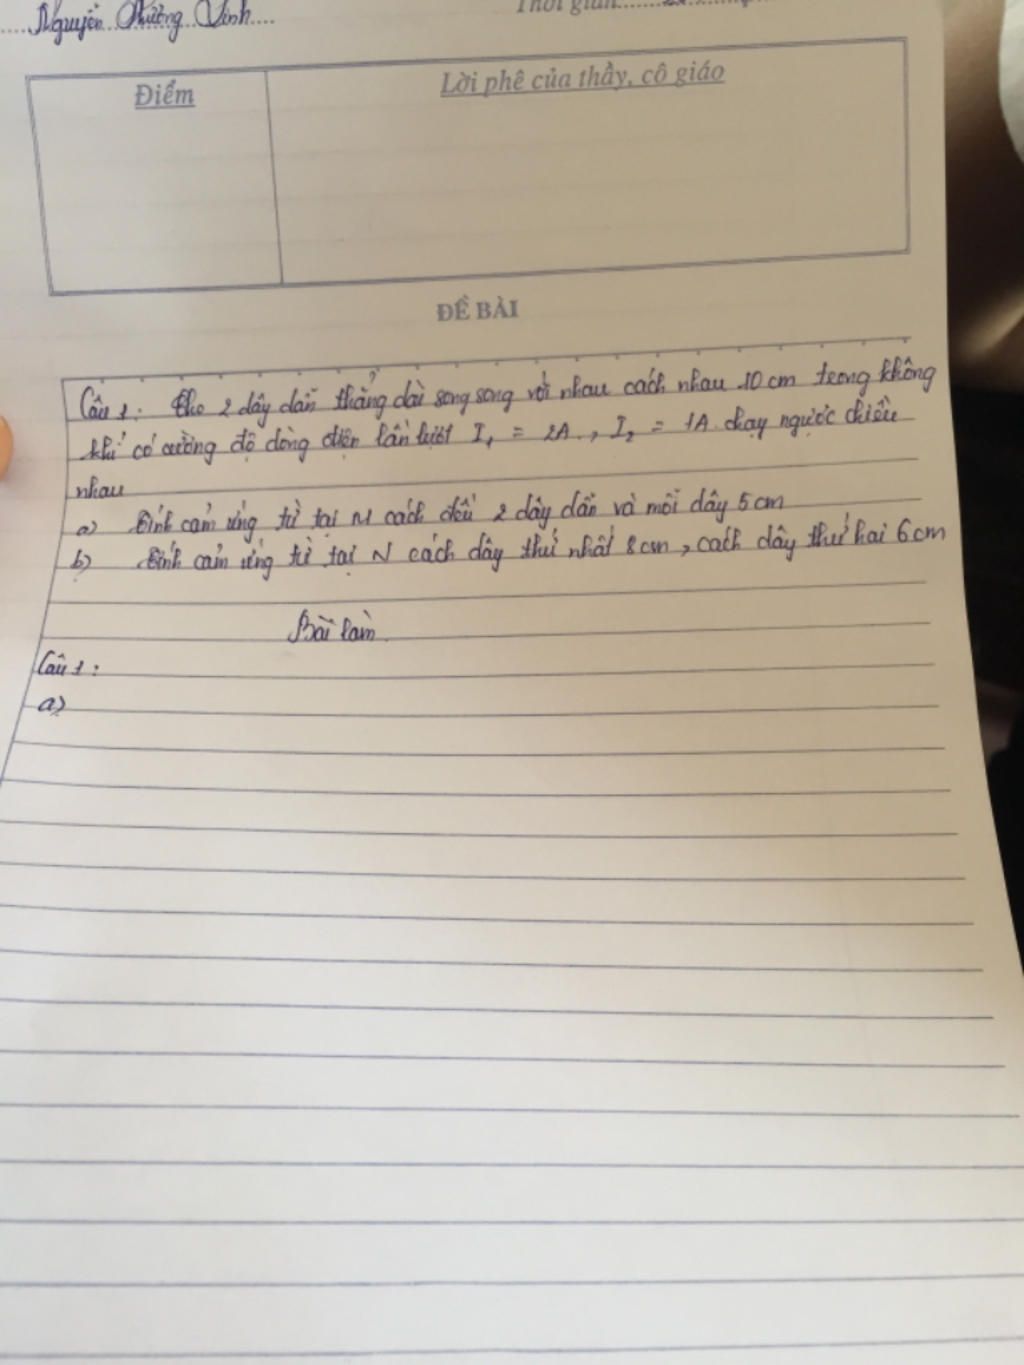 Nguyễn Phường Vinh
Thời gian
Điểm
Lời phê của thầy, cô giáo
ĐỀ BÀI
Câu 1: Cho 2 dây dẫn thẳng dài song song với nhau cách nhau 10 cm trong không
khí có cường độ dòng điện lần lượt I₁ = 2A, I₂ = 1A chạy ngược chiều
nhau
a) Tính cảm ứng từ tại M cách đều 2 dây dẫn và mỗi dây 5 cm
b) Tính cảm ứng từ tại N cách dây thứ nhất 8 cm, cách dây thứ hai 6 cm
Bài làm
Câu 1:
a)